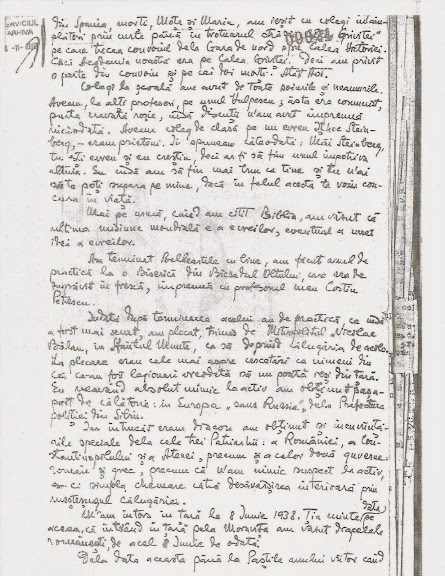 SERVICIUL
ARHIVA
din Spania, morți, Moța și Marin, am ieșit cu colegi întâm-
plători prin curte până în trotuarul străzii "Griviței"
pe care trecea convoiul dela Gara de nord spre Calea Victoriei.
Căci Academia noastră era pe Calea Griviței. Deci am privit
o parte din convoiu și pe cei doi morți. Atât tot.
Colegi la școală am avut de toate soiurile și neamurile.
Aveam, la alți profesori, pe unul Vulpescu, ăsta era comunist,
purta cravată roșie, însă discuții n'am avut împreună
niciodată. Aveam coleg de clasă pe un evreu Ithoc Stein-
berg, - eram prieteni. Îi spuneam câteodată: Măi Steinberg,
tu ești evreu și eu creștin, deci ar fi să fim unul împotriva
altuia. Eu însă am să fiu mai bun ca tine și tu n'ai
să te poți supăra pe mine, dacă în felul acesta te voiu con-
cura în viață.
Mai pe urmă, când am citit Biblia, am văzut că
ultima misiune mondială e a evreilor, eventual a unei
idei a evreilor.
Am terminut Belleartele cu bine, am făcut anul de
practică la o Biserică din Bicsadul Oltului, care era de
zugrăvit în frescă, împreună cu profesorul meu Costin
Petrescu.
Îndată după terminarea acelui an de practică, ca însă
a fost mai scurt, am plecat, trimis de Mitropolitul Nicolae
Bălan, în Sfântul Munte, ca să deprind călugăria de acolo.
La plecare erau cele mai aspre cercetări ca nimeni din
cei ce-au fost legionari vreodată să nu poată ieși din țară.
Eu neavând absolut nimic la activ am obținut pașa-
port de călătorie: în Europa "sans Russie", dela Prefectura
poliției din Sibiu.
Iar întrucât eram diacon am obținut și încuviință-
rile speciale dela cele trei Patriarhii: a României, a Con-
stantinopolului și a Atenei, precum și a celor două guverne
român și grec, precum că n'am nimic suspect la activ,
ci simpla chemare către desăvârșirea interioară prin
meșteșugul călugăriei.
M'am întors în țară la 8 Iunie 1938. Țin minte data pe
aceea, că intrând în țară pela Moravița am văzut drapelele
românești, de acel 8 Iunie de odată.
Dela data aceasta până la Paștile anului viitor când